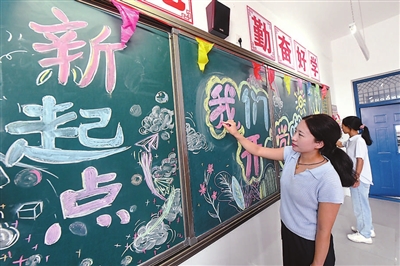 新
起
点
勤奋好学
我们
开学